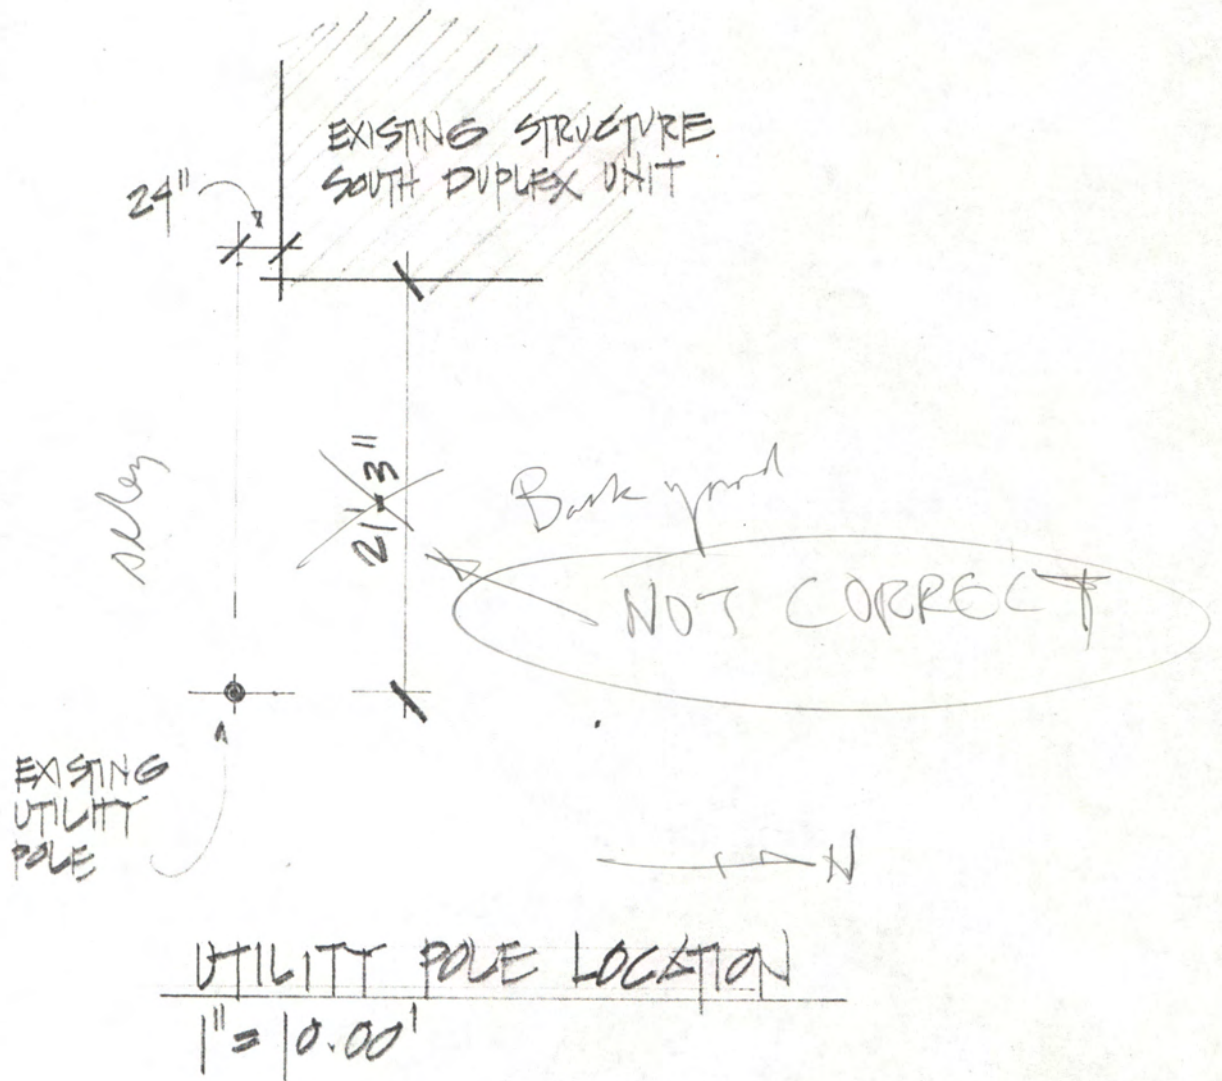 EXISTING STRUCTURE
SOUTH DUPLEX UNIT
24"
21'-3"
Back yard
alley
NOT CORRECT
EXISTING
UTILITY
POLE
N
UTILITY POLE LOCATION
1" = 10.00'